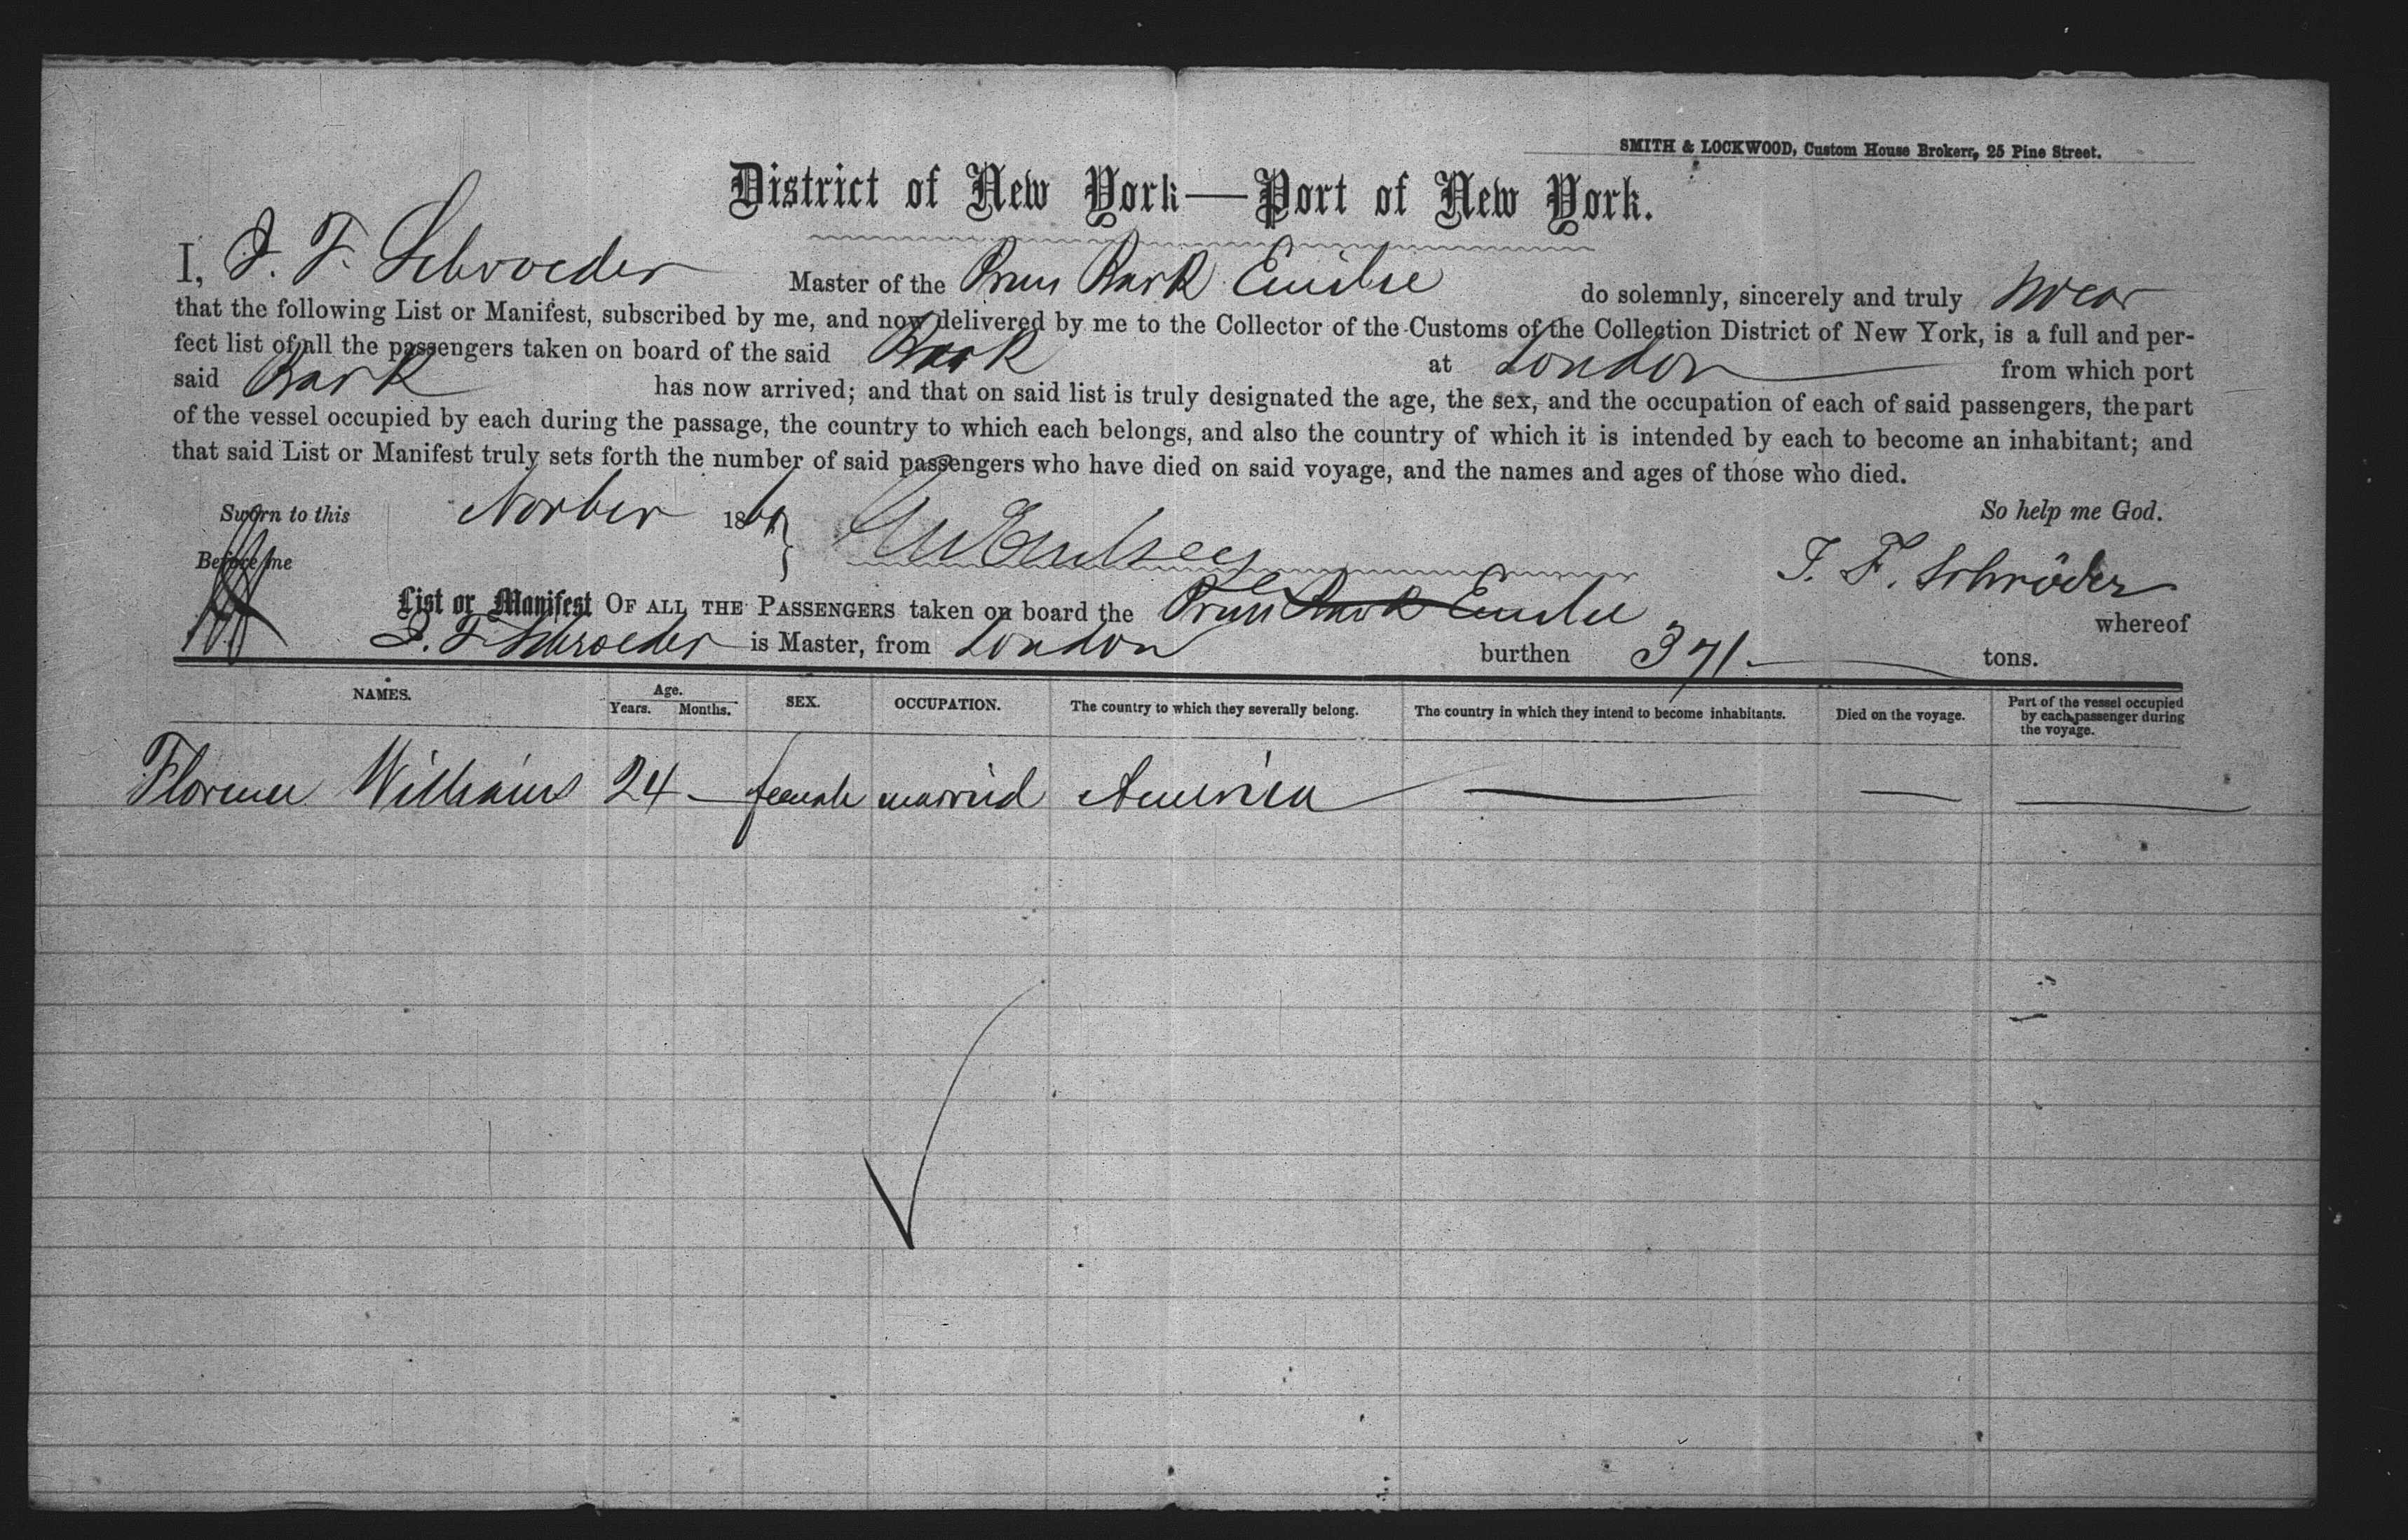 SMITH & LOCKWOOD, Custom House Brokerr, 25 Pine Street.
District of New York—Port of New York.
I, J. F. Schroeder Master of the Prus Bark Emilie do solemnly, sincerely and truly swear
that the following List or Manifest, subscribed by me, and now delivered by me to the Collector of the Customs of the Collection District of New York, is a full and per-
fect list of all the passengers taken on board of the said Bark at London from which port
said Bark has now arrived; and that on said list is truly designated the age, the sex, and the occupation of each of said passengers, the part
of the vessel occupied by each during the passage, the country to which each belongs, and also the country of which it is intended by each to become an inhabitant; and
that said List or Manifest truly sets forth the number of said passengers who have died on said voyage, and the names and ages of those who died.
Sworn to this Novber 186 So help me God.
Before me J. F. Schröder
List or Manifest OF ALL THE PASSENGERS taken on board the Prus Bark Emilie whereof
J. F. Schroeder is Master, from London burthen 371 tons.
NAMES. Age. Years. Months. SEX. OCCUPATION. The country to which they severally belong. The country in which they intend to become inhabitants. Died on the voyage. Part of the vessel occupied by each passenger during the voyage.
Florence Williams 24 — female married America — — —